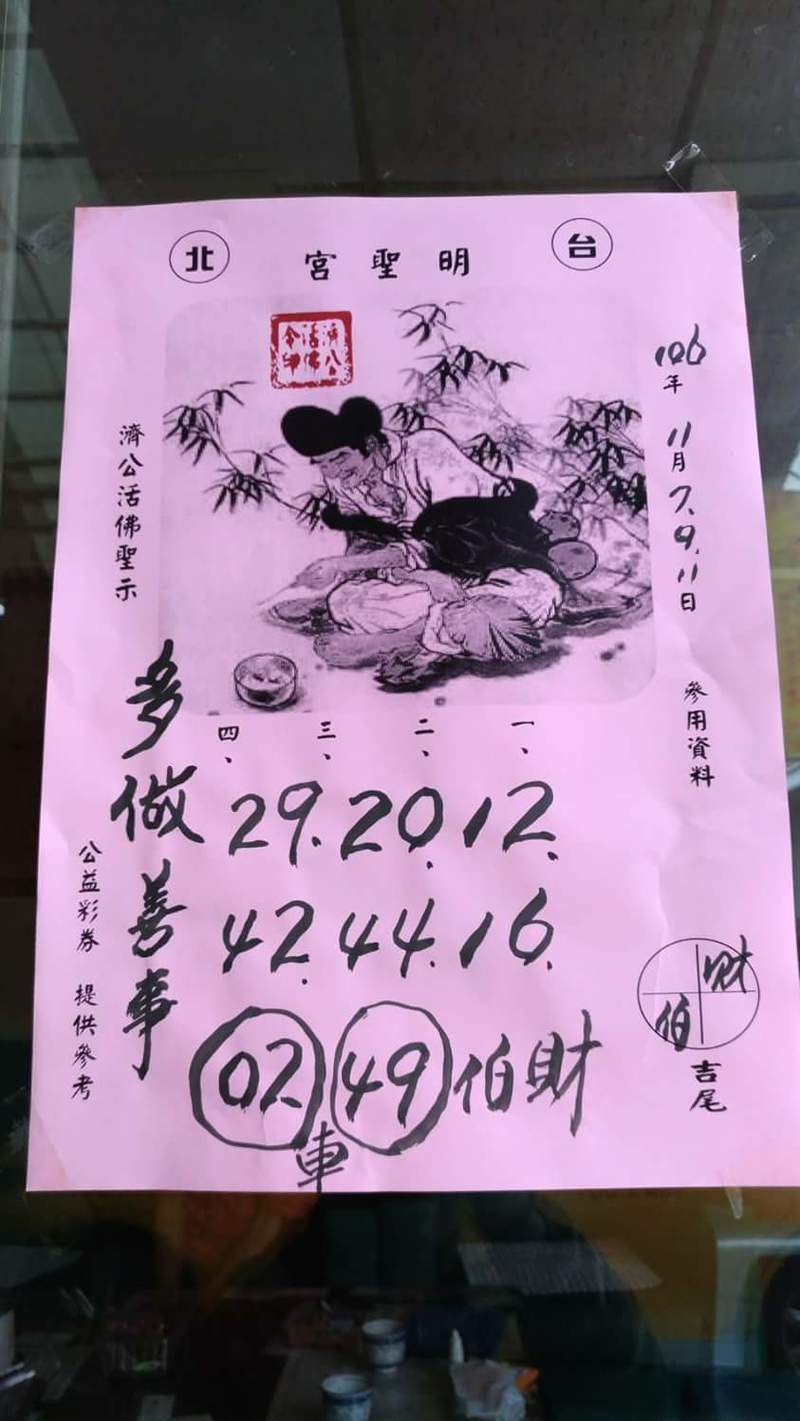 台 北
明聖宮
濟公活佛令印
106年11月7.9.11日 參用資料
一、 二、 三、 四、
12. 20. 29.
16. 44. 42.
財伯 49 02
車
財
伯
吉尾
濟公活佛聖示
多做善事
公益彩券 提供參考